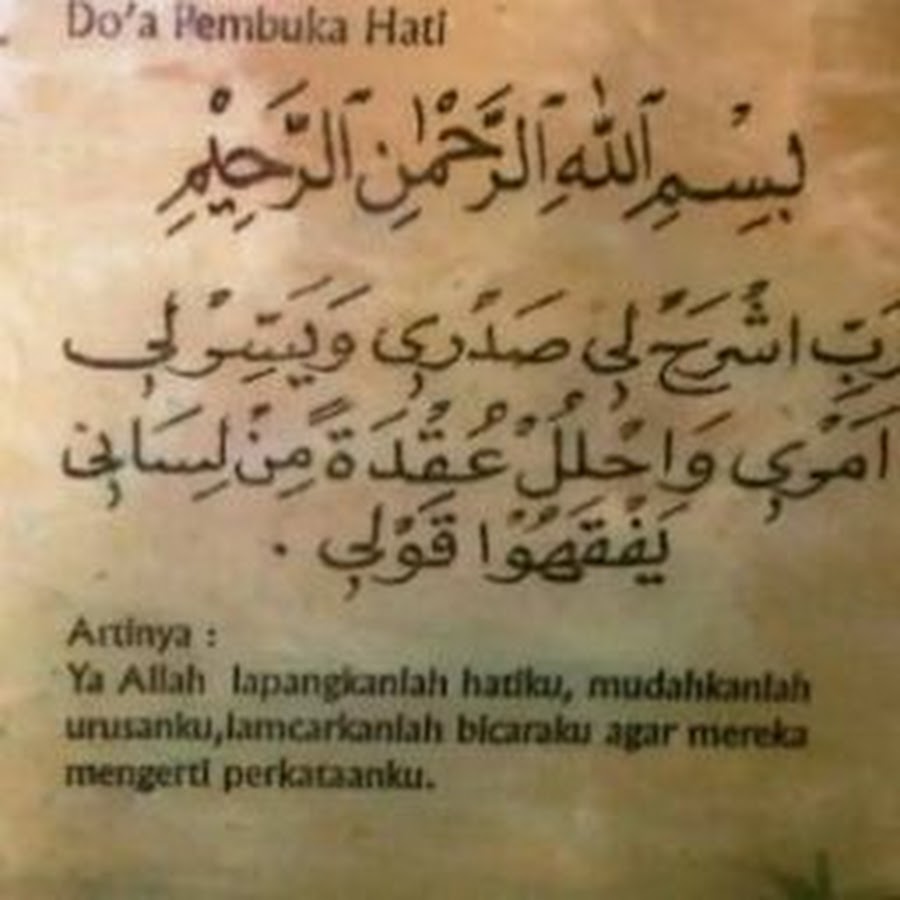 Do'a Pembuka Hati
بِسْمِ ٱللّٰهِ ٱلرَّحْمٰنِ ٱلرَّحِيْمِ
رَبِّ اشْرَحْ لِى صَدْرِى وَيَسِّرْ لِى
اَمْرِى وَاحْلُلْ عُقْدَةً مِنْ لِسَانِى
يَفْقَهُوْا قَوْلِى .
Artinya :
Ya Allah lapangkanlah hatiku, mudahkanlah
urusanku,lamcarkanlah bicaraku agar mereka
mengerti perkataanku.